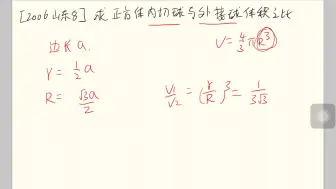 [2006山东8] 求正方体内切球与外接球体积之比
V=4/3πR³
边长a.
r=1/2 a
R=√3a/2
V₁/V₂=(r/R)³=1/3√3